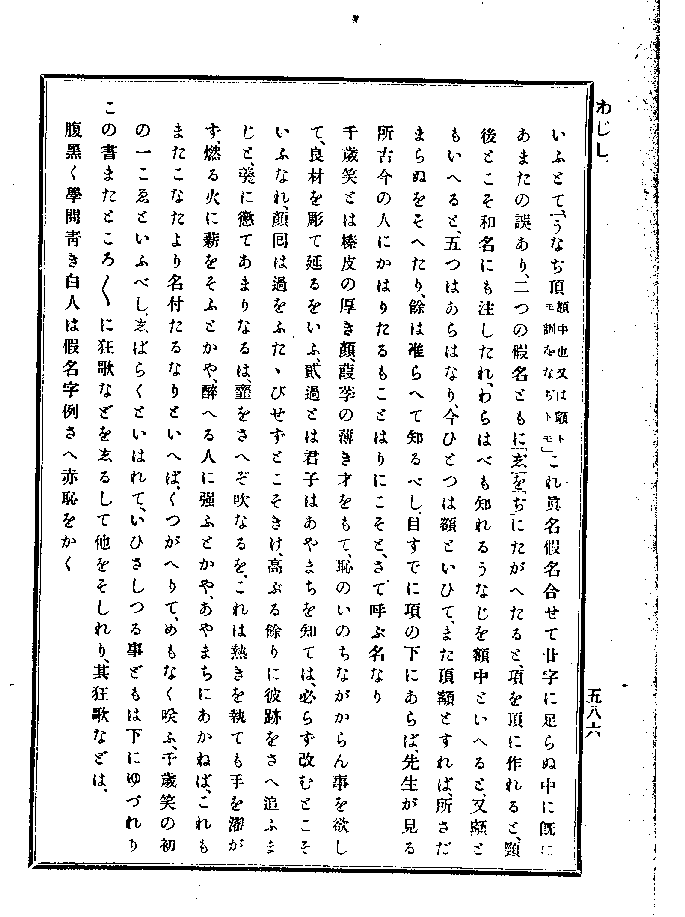 わじし
五八六
いふとて、「うなぢ頂額中也又は顱ト
モ訓をなぢトモ」これ眞名假名合せて廿字に足らぬ中に既に
あまたの誤あり、二つの假名ともに「ゑ」を「ぢ」にたがへたると、項を頂に作れると、頸
後とこそ和名にも注したれ、わらはべも知れるうなじを額中といへると、又顱と
もいへると、五つはあらはなり、今ひとつは額といひて、また頂顱とすれば、所さだ
まらぬをそへたり、餘は准らへて知るべし、目すでに項の下にあらば、先生が見る
所古今の人にかはりたるもことはりにこそと、さて呼ぶ名なり
千歳笑とは榛皮の厚き顔、葭莩の薄き才をもて、恥のいのちながからん事を欲し
て、良材を彫て延るをいふ、貳過とは君子はあやまちを知ては、必らず改むとこそ
いふなれ、顔回は過をふたゝびせずとこそきけ、高ぶる餘りに彼跡をさへ追ふま
じと、羹に懲てあまりなるは、虀をさへぞ吹なるを、これは熱きを執ても手を濯が
ず、燃る火に薪をそふとかや、醉へる人に強ふとかや、あやまちにあかねば、これも
またこなたより名付たるなりといへば、くつがへりて、めもなく咲ふ、千歳笑の初
の一こゑといふべし、ゑばらくといはれて、いひさしつる事どもは下にゆづれり
この書またところ〴〵に狂歌などをゑるして他をそしれり、其狂歌などは、
腹黑く學問靑き白人は假名字例さへ赤恥をかく